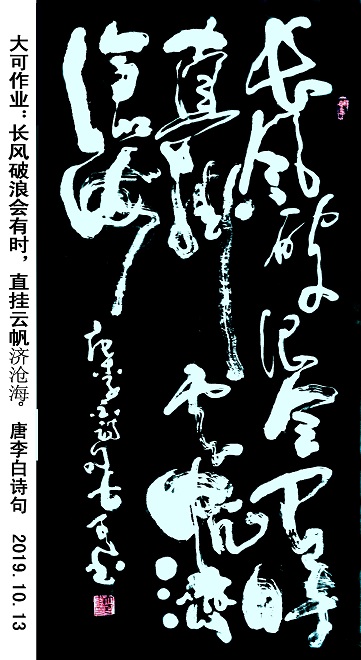 长风破浪会有時
直掛雲帆濟
滄海
大可作业：长风破浪会有时，直挂云帆济沧海。 唐李白诗句 2019.10.13